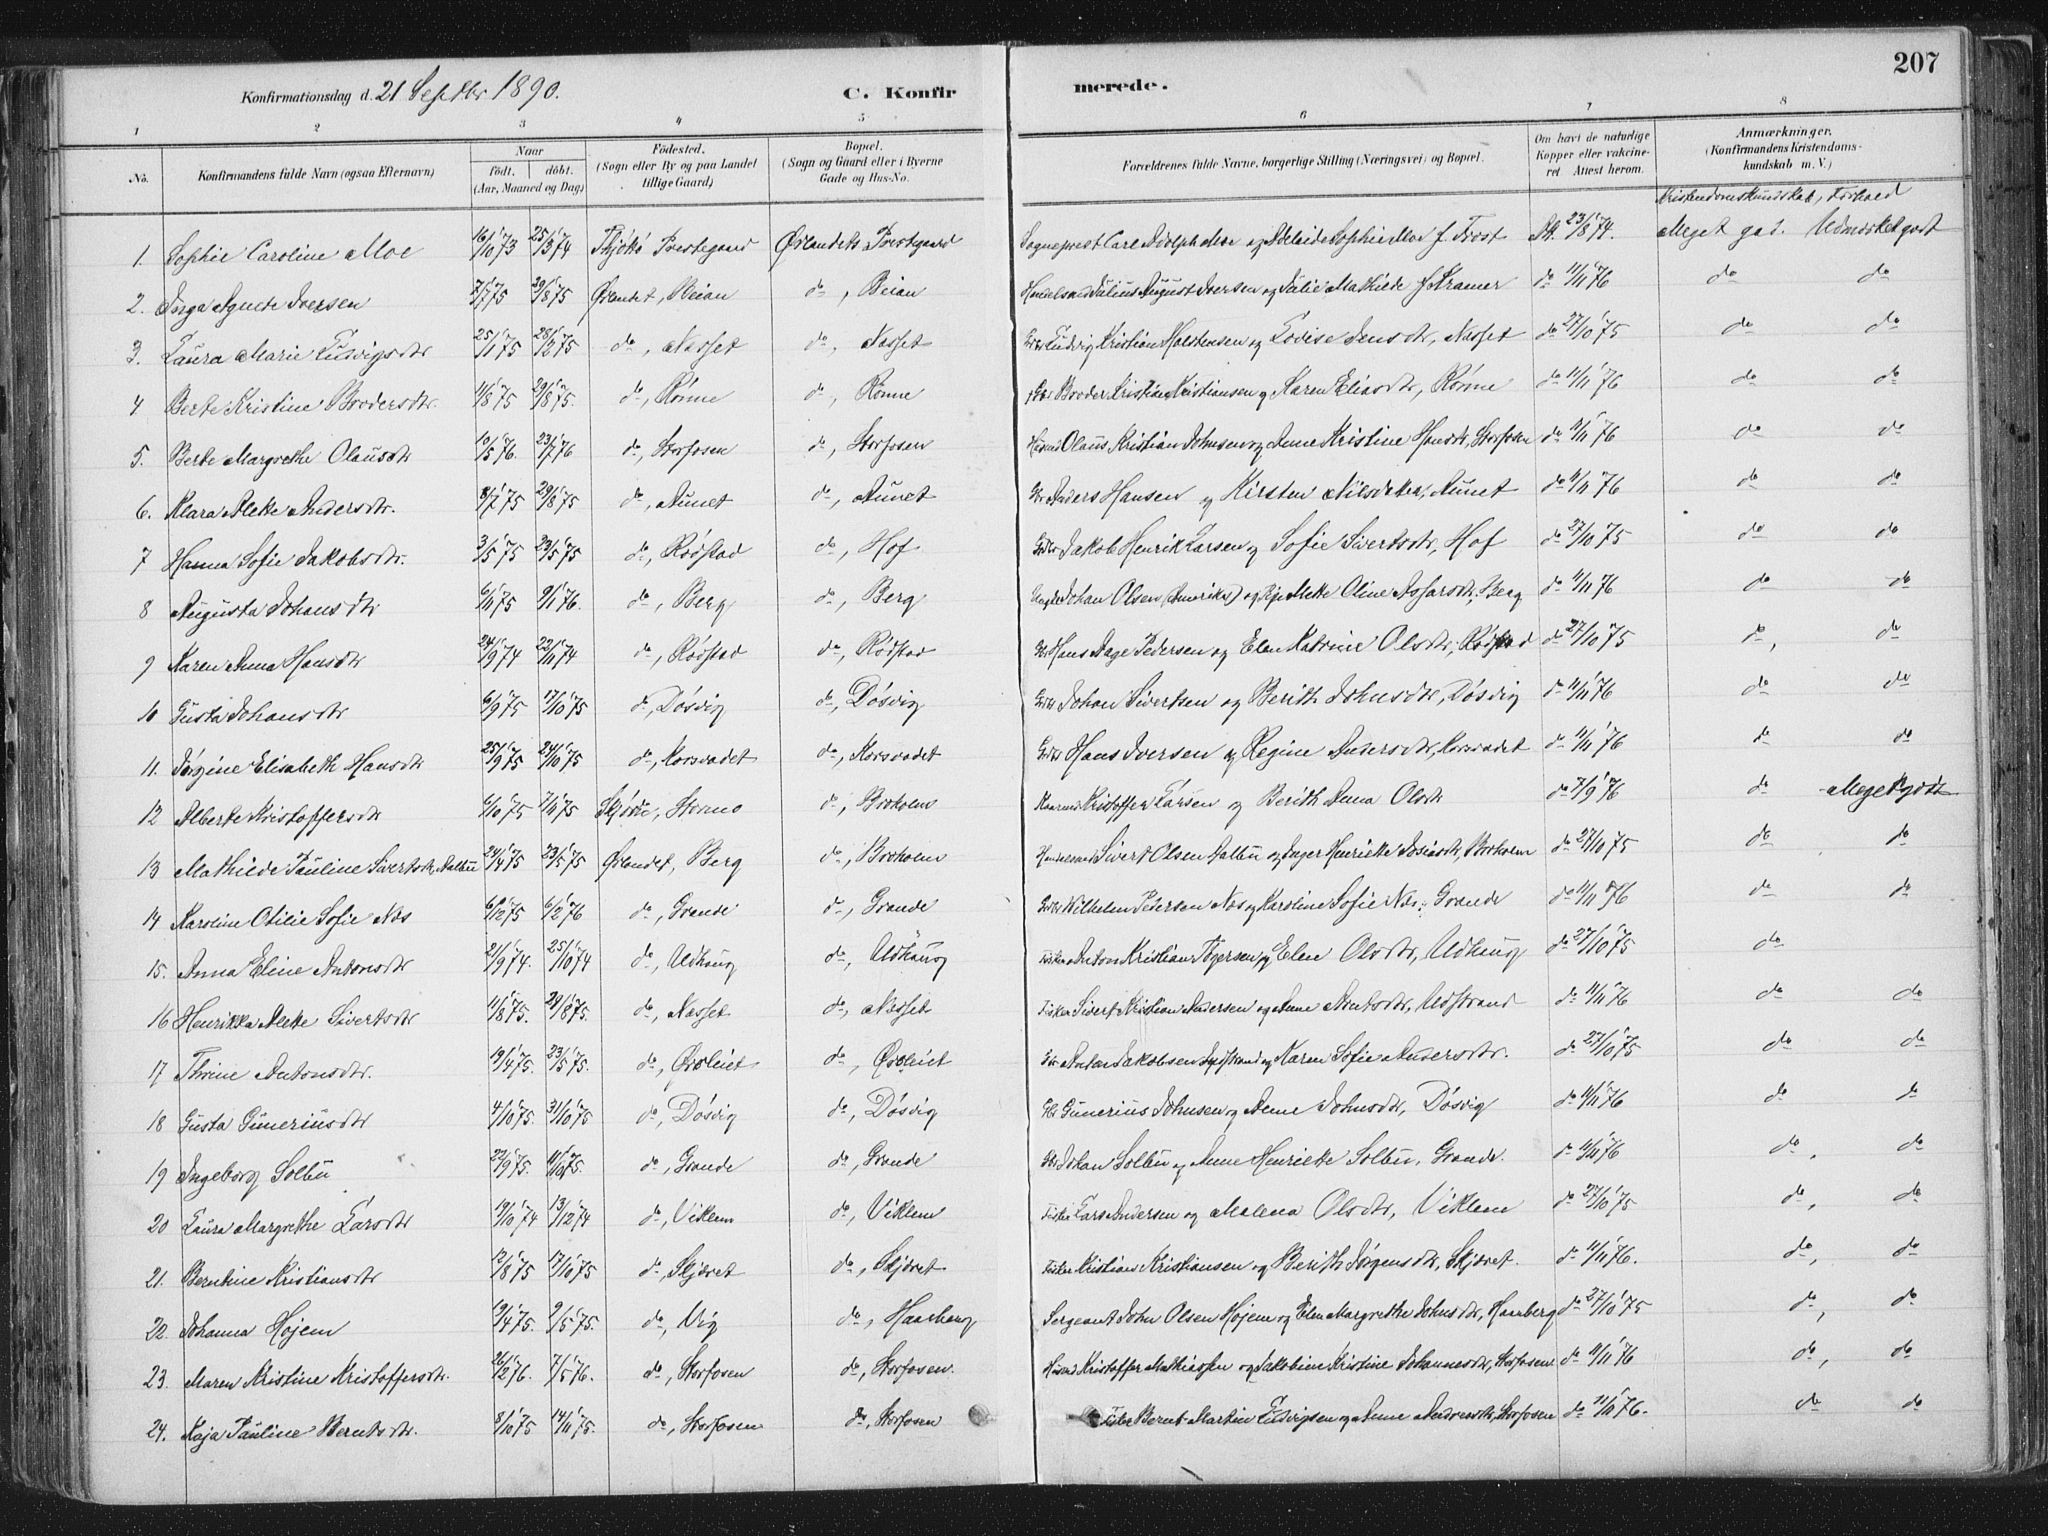 207
Konfirmationsdag d. 21 Septbr 1890. C. Konfirmerede.
1 2 3 4 5 6 7 8
No. Konfirmandens fulde Navn (ogsaa Efternavn) Naar födt. döbt. (Aar, Maaned og Dag) Födested. (Sogn eller By og paa Landet tillige Gaard) Bopæl. (Sogn og Gaard eller i Byerne Gade og Hus-No. Forældrenes fulde Navne, borgerlige Stilling (Næringsvei) og Bopæl. Om havt de naturlige Kopper eller vakcineret Attest herom. Anmærkninger. (Konfirmandens Kristendomskundskab m. V.)
Kristendomskundskab, Forhold
1. Sophie Caroline Moe 16/10 73 25/3 74 Prestegaard Ørlandets Prestegaard Sogneprest Carl Adolph Moe og Adelaide Sophie Moe f. Frost 23/8 74. Meget god. Udmærket godt
2. Inga Agnete Iversen 7/7 75 29/8 75 Ørlandet, Beian do, Beian Julius August Iversen og Julie Mathilde f. Kramer do 11/11 76 do do
3. Laura Marie Ludvigsdtr 25/11 75 28/12 75 do, Næsset do, Næsset Ludvig Kristian Holstensen og Lovise Jensdtr, Næsset do 27/10 75 do do
4 Berte Kristine Brodersdtr. 11/8 75 29/8 75. do, Rönne do, Rönne Broder Kristian Kristiansen og Karen Eliasdtr, Rönne do 11/11 76 do do
5. Berte Margrethe Olausdtr 10/5 76. 23/7 76 do, Storfosen do, Storfosen Olaus Kristian Johnsen og Anne Kristine Hansdtr, Storfosen do 11/11 76 do do
6. Klara Mette Andersdtr. 8/7 75 29/8 75 do, Aunet do, Aunet Anders Hansen og Kirsten Nilsdatter, Aunet do 11/11 76 do do
7 Hanna Sofie Jakobsdtr. 3/5 75 23/5 75 do, Rödstad do, Hof Jakob Henrik Larsen og Sofie Sivertsdtr, Hof do 27/10 75 do do
8 Augusta Johansdtr 6/11 75 9/1 76. do, Berg do, Berg Johan Olsen (Amerika) og Mette Oline Assarsdtr, Berg do 11/11 76 do do
9 Karen Anna Hansdtr 24/9 74 22/11 74 do, Rödstad do, Rödstad Hans Aage Pedersen og Elen Katrine Olsdtr, Rödstad do 27/10 75 do, do
10 Gusta Johansdtr 6/9 75 17/10 75 do, Dösvig do, Dösvig Johan Sivertsen og Berith Johnsdtr, Dösvig do 11/11 76 do do
11. Jörgine Elisabeth Hansdtr 25/9 75 24/10 75 do, Korsvadet do, Korsvadet Hans Iversen og Regine Andersdtr, Korsvadet do 11/11 76 do do
12 Alberte Kristoffersdtr 6/10 75 7/11 75 Stormo do, Borholm Kristoffer Larsen og Berith Anna Olsdtr do 7/9 76 do Meget godt
13 Mathilde Pauline Sivertsdtr, Aalbu 24/4 75 23/5 75 Ørlandet, Berg do, Borholm Sivert Olsen Aalbu og Inger Henrikke Josiasdtr, Borholm do 27/10 75 do do
14 Karoline Otilie Sofie Næs 6/12 75 6/2 76 do, Grande do, Grande Vilhelm Pedersen Næs og Karoline Sofie Næs, Grande do 11/11 76 do do
15. Anna Eline Antonsdtr 21/9 74. 25/10 74 do, Udhaug do, Udhaug Anton Kristian Tögersen og Elen Olsdtr, Udhaug do 27/10 75 do
16 Henrikka Mette Sivertsdtr 11/8 75. 29/8 75. do, Næsset do, Næsset Fisker Sivert Kristian Andersen og Anne Arntsdtr, Udstrand do 11/11 76 do do
17 Thrine Antonsdtr. 19/4 75. 23/5 75. do, Øvsleiet do, Øvsleiet Anton Jakobsen og Karen Sofie Andersdtr. do 27/10 75 do do
18 Gusta Guneriusdtr 4/10 75. 31/10 75 do, Dösvig do, Dösvig Gunerius Johnsen og Anne Johnsdtr, Dösvig do 11/11 76 do do
19 Ingeborg Solbu 22/9 75. 11/10 75. do, Grande do, Grande Johan Solbu og Anne Henrikke Solbu, Grande. do 11/11 76 do, do
20 Laura Margrethe Larsdtr 19/10 74 13/12 74 do, Viklem do, Viklem Fisker Lars Andersen og Malena Olsdtr, Viklem do 27/10 75 do, do
21. Berntine Kristiansdtr 12/8 75 17/10 75 do, Skjæret do, Skjæret Fisker Kristian Kristiansen og Berith Jörgensdtr, Skjæret. do 11/11 76. do, do
22. Johanna Höjem 19/4 75. 9/5 75. do, Vig do, Haaberg Sergeant John Olsen Höjem og Elen Margrethe Johnsdtr, Haaberg do 27/10 75 do, do
23. Maren Kristine Kristoffersdtr. 26/2 76. 7/5 76. do, Storfosen do, Storfosen. Kristoffer Mathiassen og Jakobine Kristine Johannesdtr, Storfosen do 11/11 76 do, do
24. Kaja Pauline Berntsdtr. 8/10 75 14/11 75. do, Storfosen do, Storfosen Fisker Bernt Martin Ludvigsen og Anne Andreasdtr, Storfosen do 11/11 76. do do